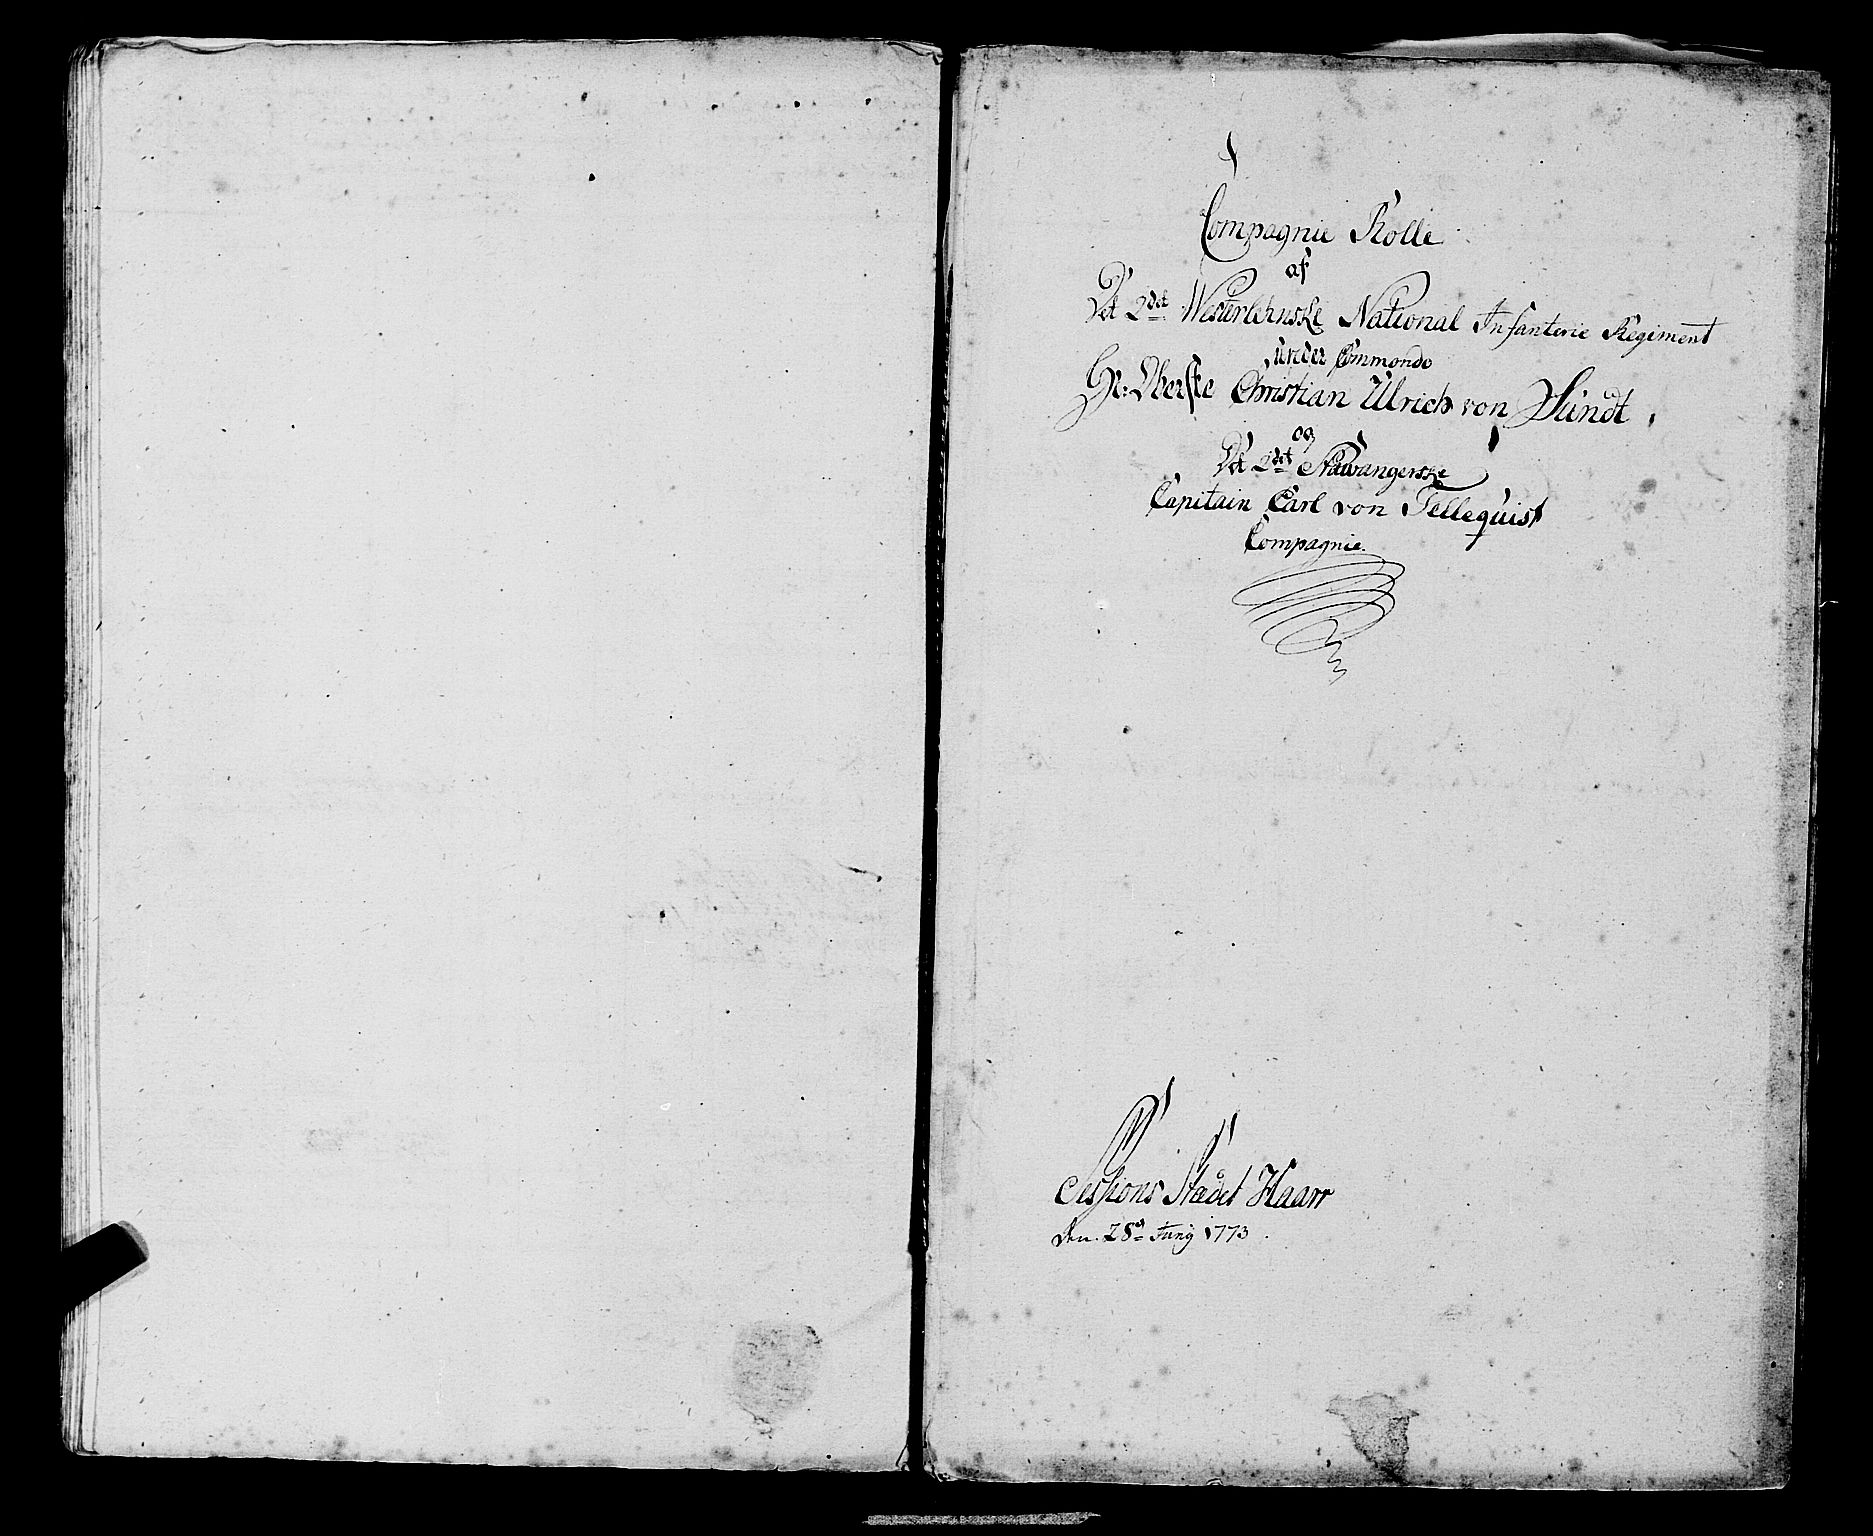 Compagnie Rolle
af
Det 2det Westerlehnske National Infanterie Regiment
under Commando
Hr: Oberste Christian Ulrich von Sundt,
og
Det 2det Stawangerske
Capitain Carl von Tellequist
Compagnie.
Sessions Stædet Haarr
den. 28de Juny 1773.